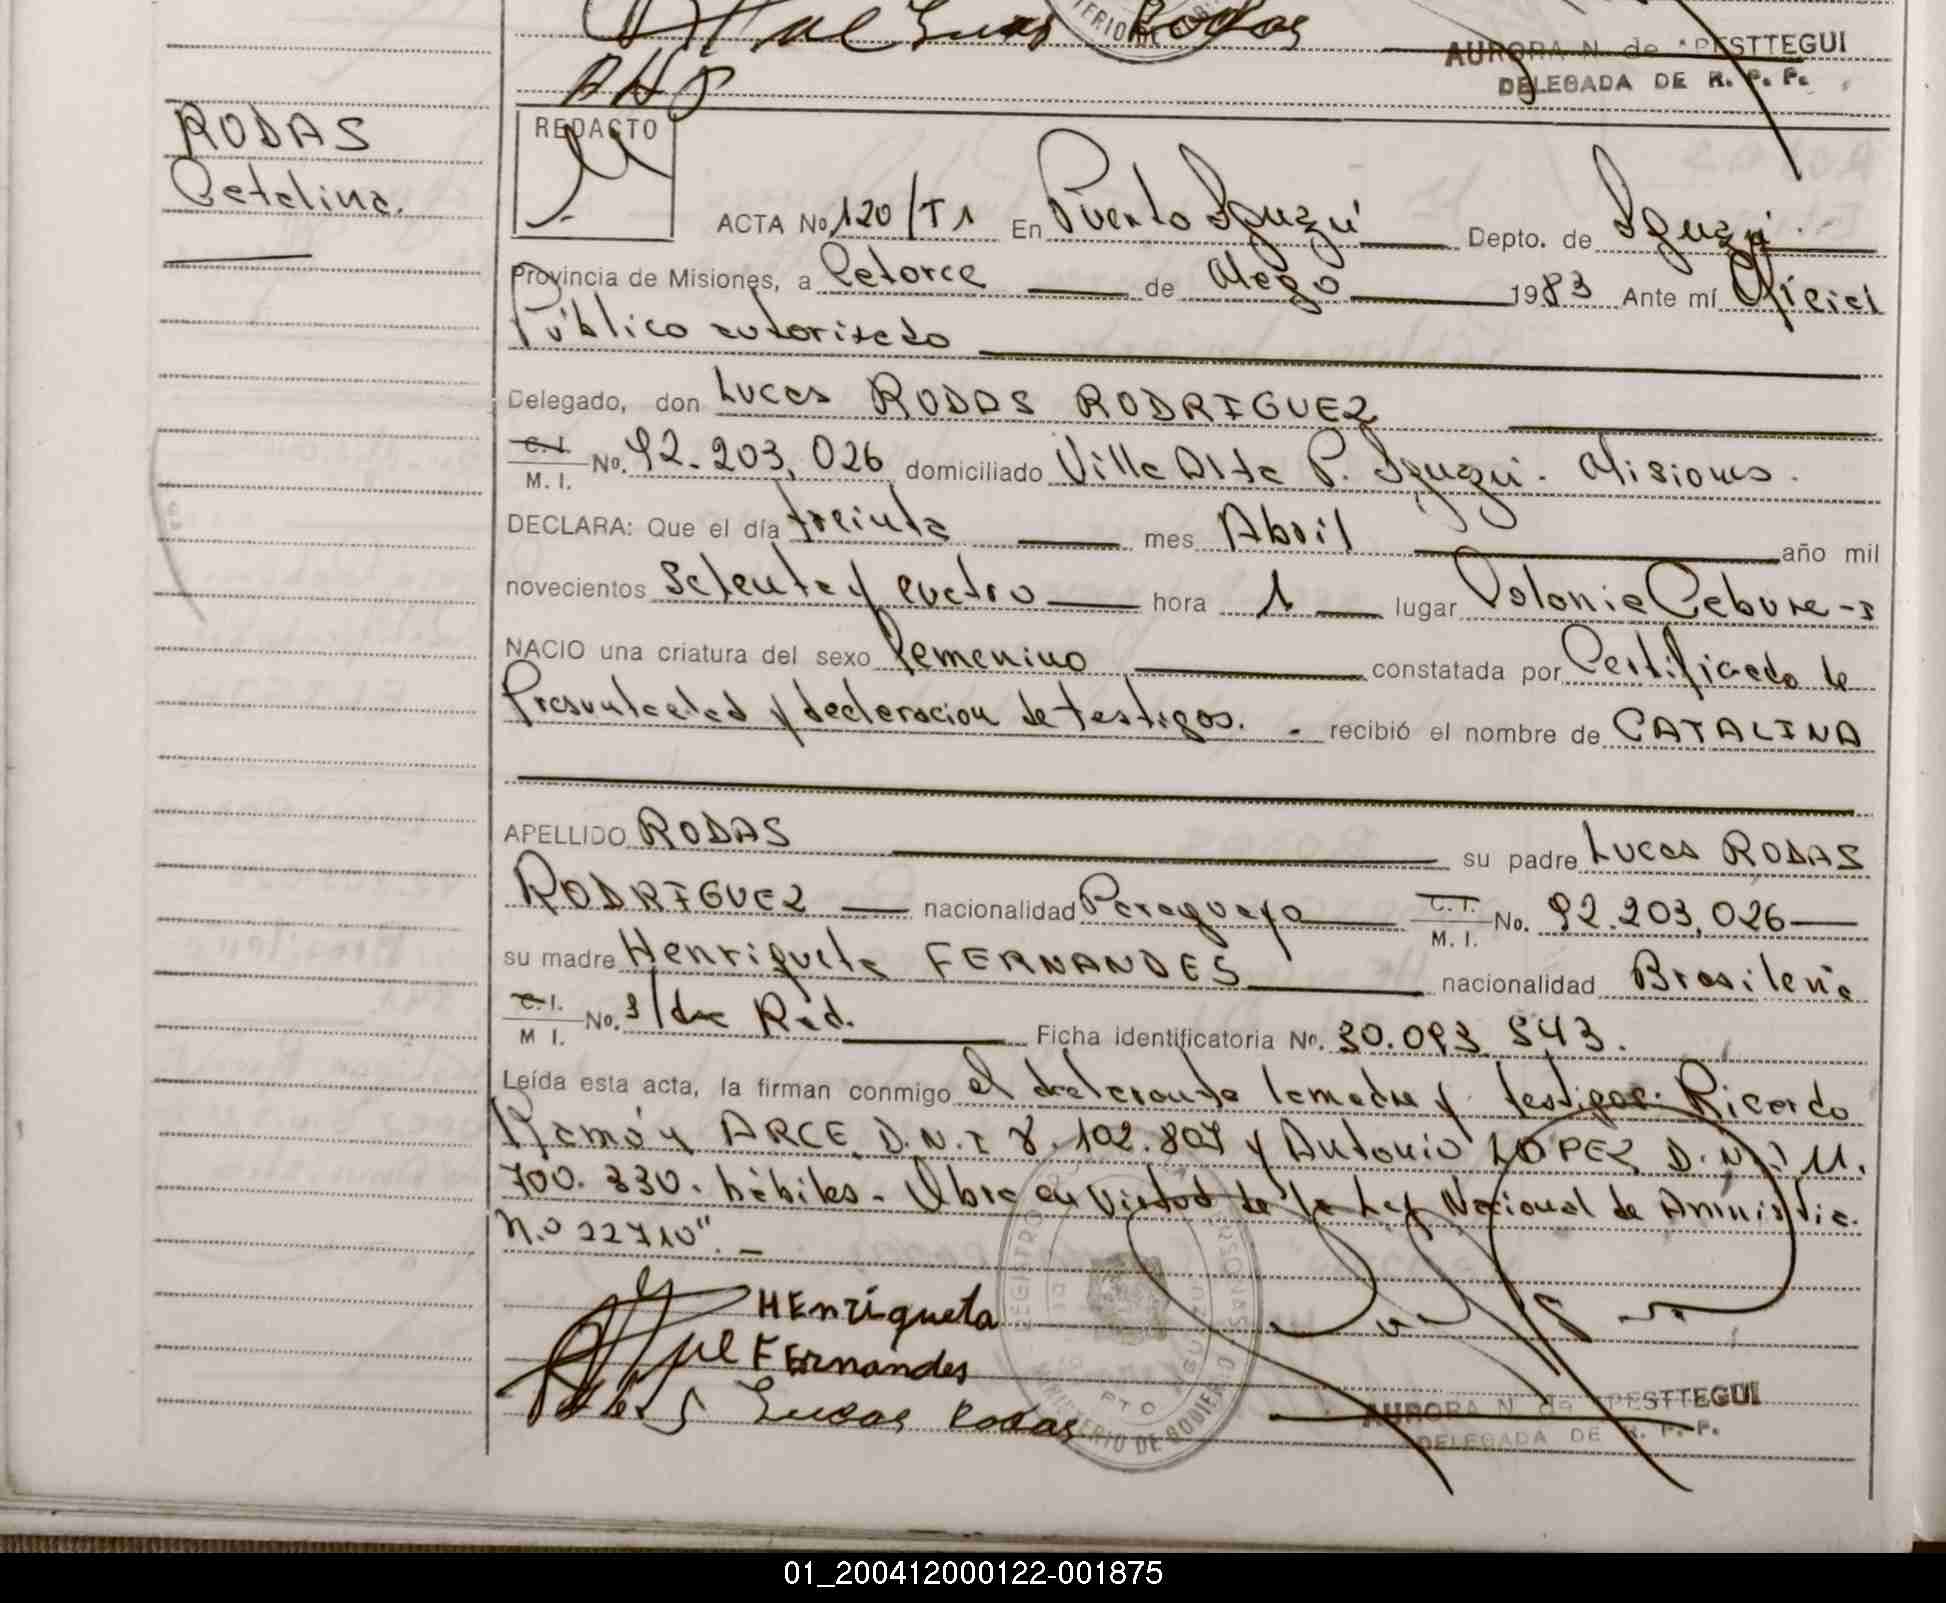 Lucas Rodas
AURORA N. de APESTTEGUI
DELEGADA DE R. P. P.
RODAS
Catalina.
REDACTO
ACTA No 120/T1 En Puerto Iguazú Depto. de Iguazú
Provincia de Misiones, a Catorce de Mayo 1983 Ante mí Oficial
Público autorizado
Delegado, don Lucas RODAS RODRIGUEZ
C. I. M. I. No. 92.203.026 domiciliado Villa Alta P. Iguazú - Misiones.
DECLARA: Que el día treinta mes Abril año mil
novecientos setenta y cuatro hora 1 lugar Colonia Cabure-i
NACIO una criatura del sexo femenino constatada por Certificado de
Presunta edad y declaracion de testigos. - recibió el nombre de CATALINA
APELLIDO RODAS su padre Lucas RODAS
RODRIGUEZ nacionalidad Paraguaya C. I. M. I. No. 92.203.026
su madre Henriqueta FERNANDES nacionalidad Brasileña
C. I. M I. No. Rad. Ficha identificatoria No. 30.093.543.
Leída esta acta, la firman conmigo el declarante la madre y testigos: Ricardo
Ramón ARCE D.N.I 8.102.807 y Antonio LOPEZ D.N.I 11.
700.330. hábiles - Obra en virtud de la Ley Nacional de Amnistia.
N.o 22710". -
HEnriqueta
FErnandes
Lucas Rodas
REGISTRO PERSONAS
PTO IGUAZU
MINISTERIO DE GOBIERNO
AURORA N de APESTTEGUI
DELEGADA DE R. P. P.
01_200412000122-001875